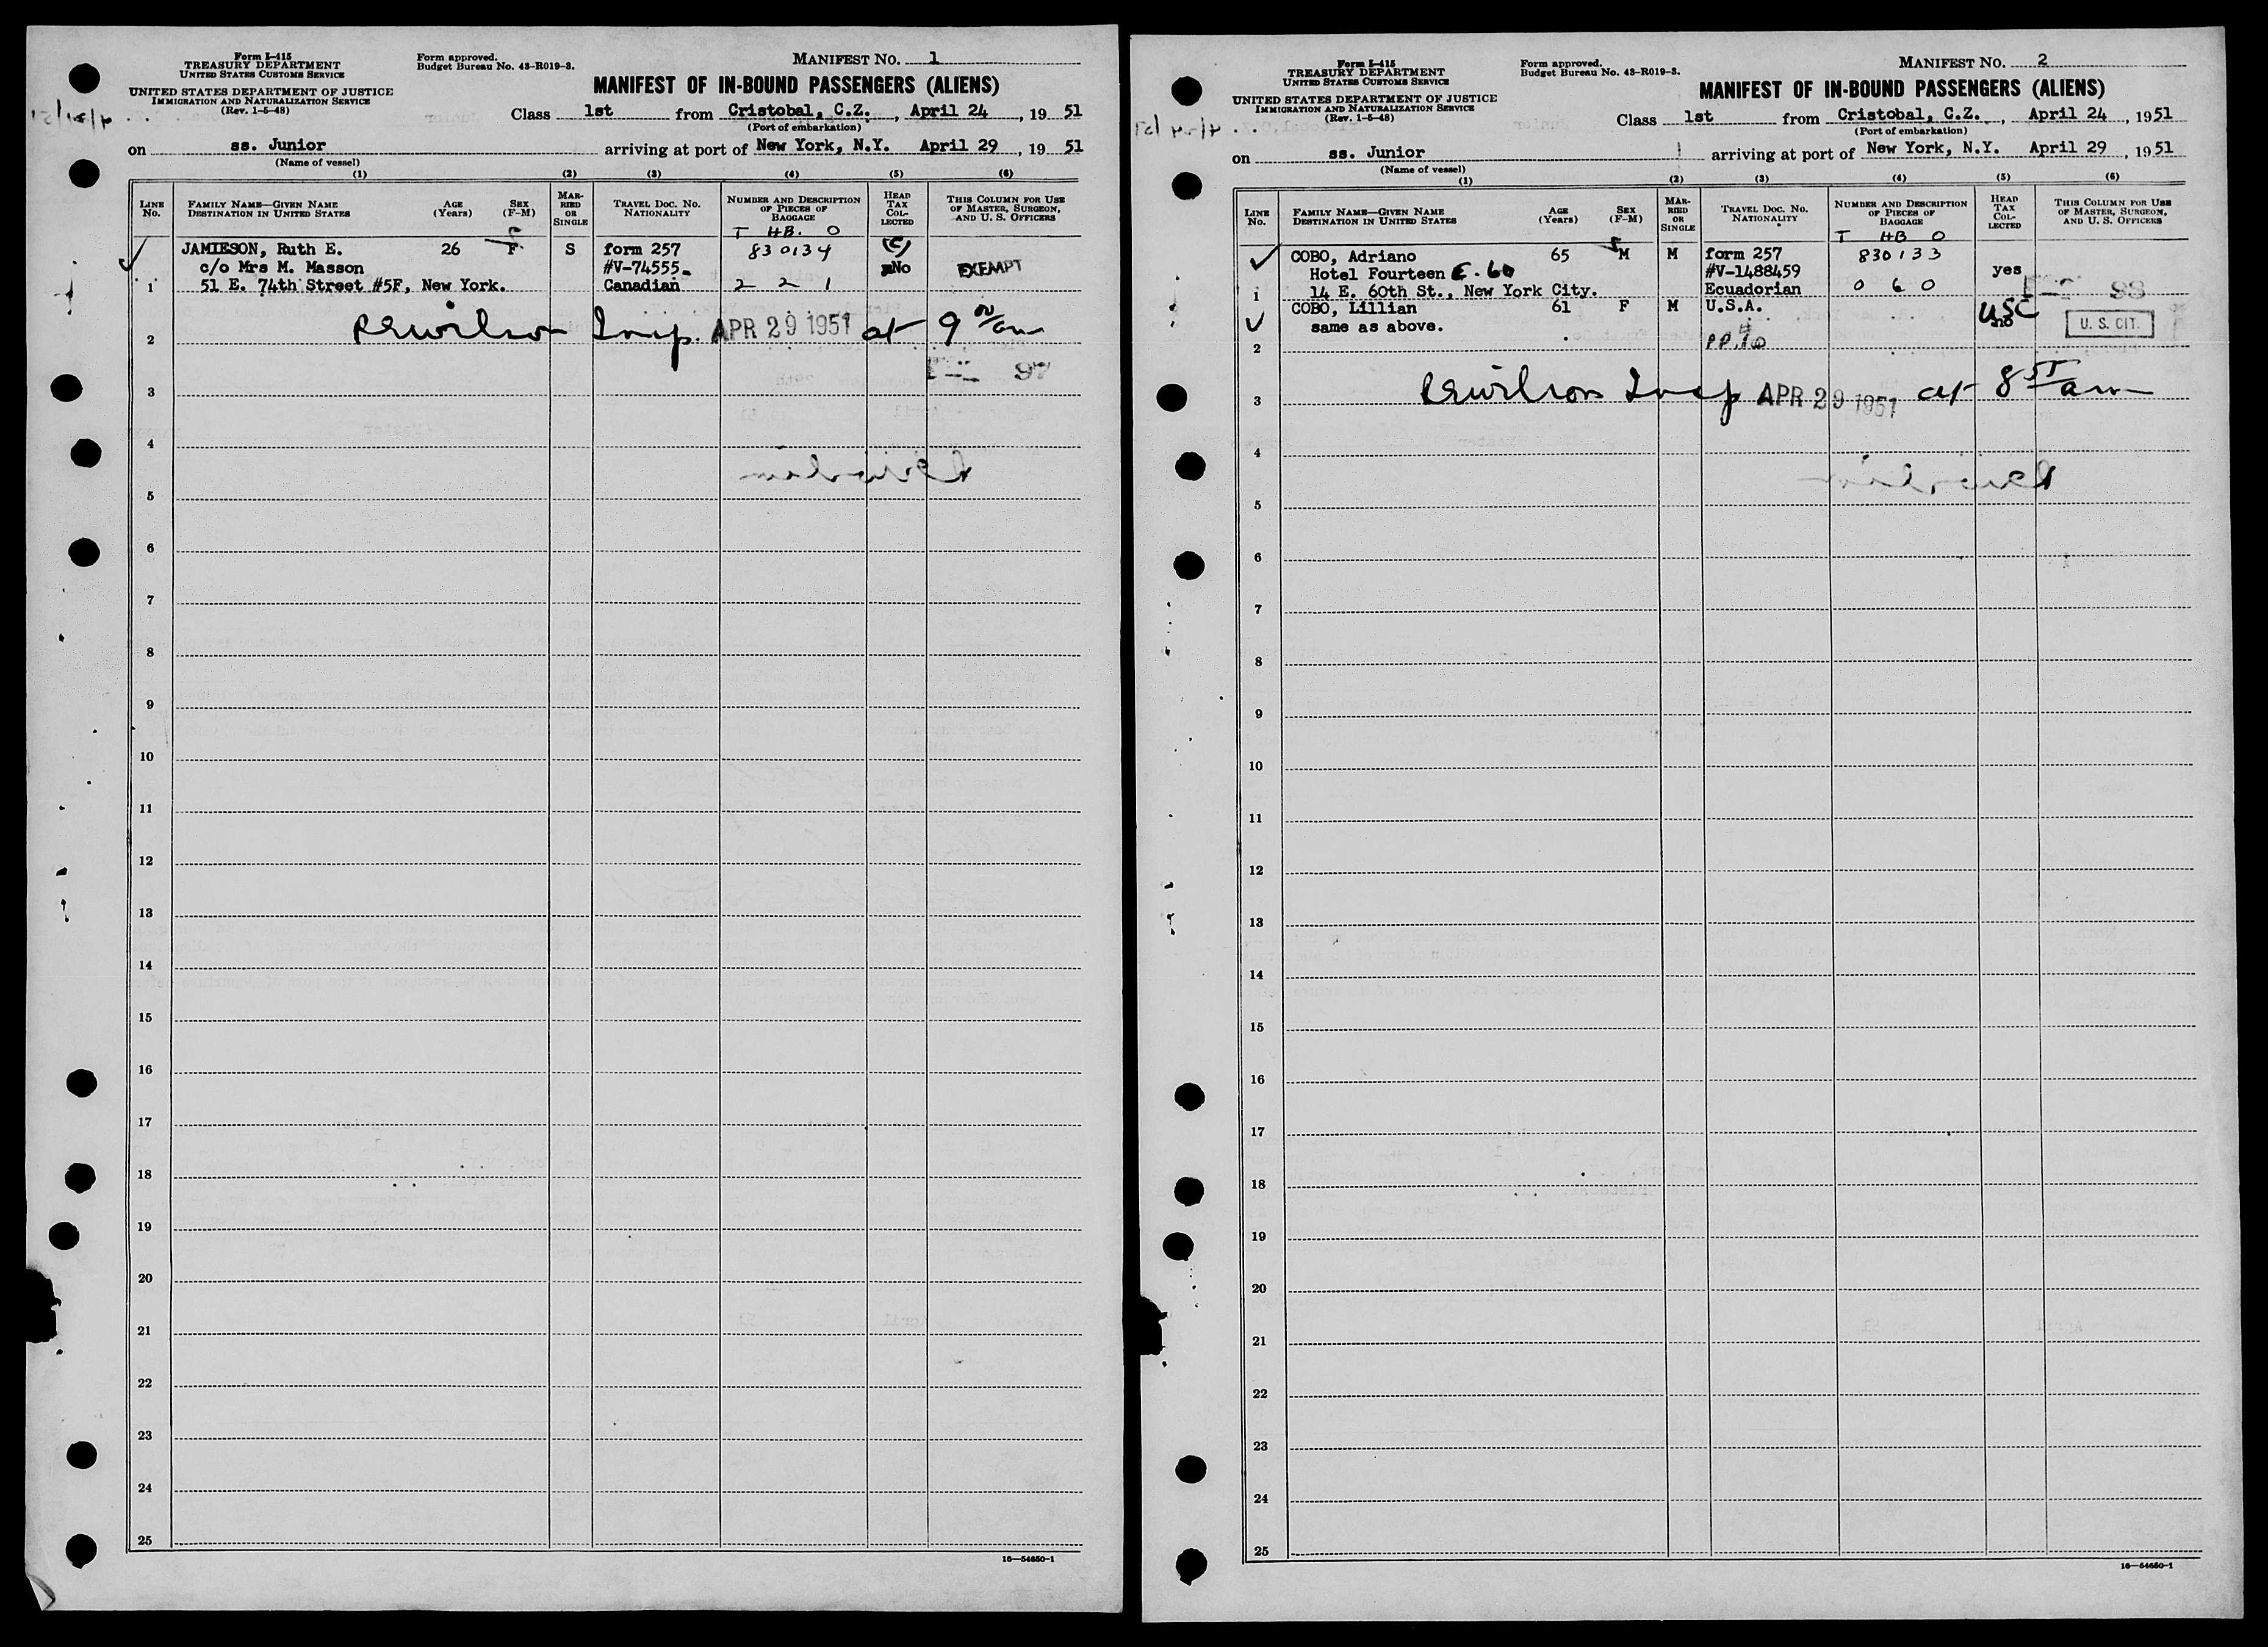 Form I-415
TREASURY DEPARTMENT
UNITED STATES CUSTOMS SERVICE
UNITED STATES DEPARTMENT OF JUSTICE
IMMIGRATION AND NATURALIZATION SERVICE
(Rev. 1-5-48)
Form approved.
Budget Bureau No. 43-R019-3.
MANIFEST NO. 1
MANIFEST OF IN-BOUND PASSENGERS (ALIENS)
Class 1st from Cristobal, C.Z., April 24, 19 51
(Port of embarkation)
on ss. Junior arriving at port of New York, N.Y. April 29, 19 51
(Name of vessel)
(1) (2) (3) (4) (5) (6)
LINE No. FAMILY NAME—GIVEN NAME DESTINATION IN UNITED STATES AGE (Years) SEX (F-M) MARRIED OR SINGLE TRAVEL DOC. NO. NATIONALITY NUMBER AND DESCRIPTION OF PIECES OF BAGGAGE HEAD TAX COLLECTED THIS COLUMN FOR USE OF MASTER, SURGEON, AND U. S. OFFICERS
T HB. O
JAMIESON, Ruth E. 26 F S form 257 830134 (C)
c/o Mrs M. Masson #V-74555 No EXEMPT
1 51 E. 74th Street #5F, New York. Canadian 2 2 1
2 Insp. APR 29 1951 at 9 00 am
97
3
4
5
6
7
8
9
10
11
12
13
14
15
16
17
18
19
20
21
22
23
24
25
16—54650-1
Form I-415
TREASURY DEPARTMENT
UNITED STATES CUSTOMS SERVICE
UNITED STATES DEPARTMENT OF JUSTICE
IMMIGRATION AND NATURALIZATION SERVICE
(Rev. 1-5-48)
Form approved.
Budget Bureau No. 43-R019-3.
MANIFEST NO. 2
MANIFEST OF IN-BOUND PASSENGERS (ALIENS)
Class 1st from Cristobal, C.Z., April 24, 19 51
(Port of embarkation)
on ss. Junior arriving at port of New York, N.Y. April 29, 19 51
(Name of vessel)
(1) (2) (3) (4) (5) (6)
LINE No. FAMILY NAME—GIVEN NAME DESTINATION IN UNITED STATES AGE (Years) SEX (F-M) MARRIED OR SINGLE TRAVEL DOC. NO. NATIONALITY NUMBER AND DESCRIPTION OF PIECES OF BAGGAGE HEAD TAX COLLECTED THIS COLUMN FOR USE OF MASTER, SURGEON, AND U. S. OFFICERS
T HB O
COBO, Adriano 65 M M form 257 830133
Hotel Fourteen E. 60 #V-1488459 yes
1 14 E. 60th St., New York City. Ecuadorian 0 6 0 98
COBO, Lillian 61 F M U.S.A. USC
same as above. no U. S. CIT.
2
3 Insp APR 29 1951 at 8 am
4
5
6
7
8
9
10
11
12
13
14
15
16
17
18
19
20
21
22
23
24
25
16—54650-1